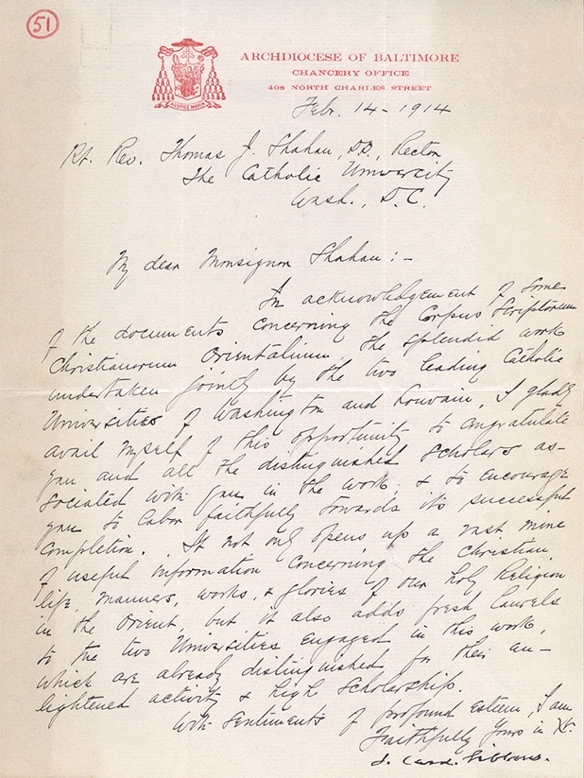 51
ARCHDIOCESE OF BALTIMORE
CHANCERY OFFICE
408 NORTH CHARLES STREET
Feb. 14 - 1914
Rt. Rev. Thomas J. Shahan, D.D., Rector
The Catholic University
Wash., D.C.
My dear Monsignor Shahan :-
In acknowledgement of some
of the documents concerning the Corpus Scriptorum
Christianorum Orientalium, the splendid work
undertaken jointly by the two leading Catholic
Universities of Washington and Louvain, I gladly
avail myself of this opportunity to congratulate
you and all the distinguished scholars as-
sociated with you in the work, & to encourage
you to labor faithfully towards its successful
completion. It not only opens up a vast mine
of useful information concerning the Christian
life, manners, works, & glories of our holy Religion
in the Orient, but it also adds fresh laurels
to the two Universities engaged in this work,
which are already distinguished for their en-
lightened activity & high scholarship.
With sentiments of profound esteem, I am
Faithfully Yours in Xt.
J. Card. Gibbons.